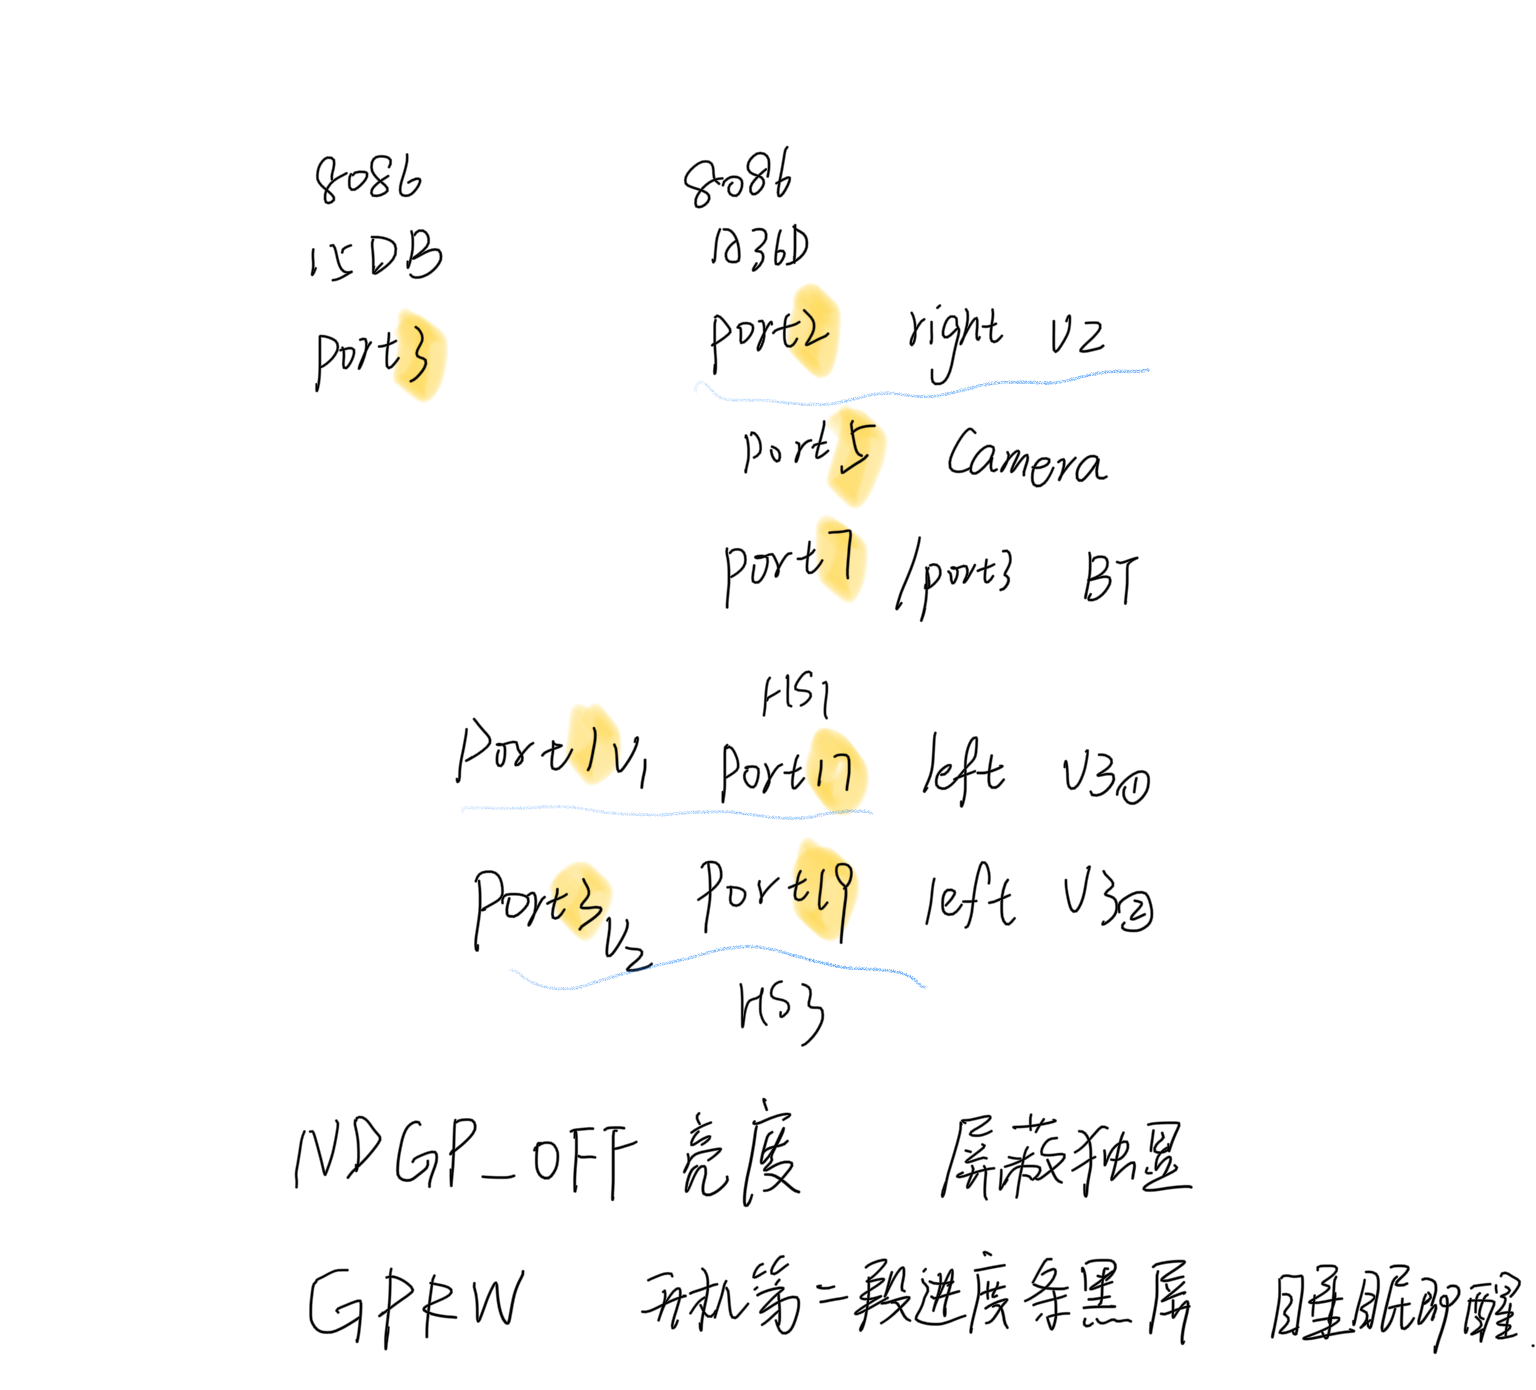 8086 8086
15DB A36D
port3 port2 right V2
port5 Camera
port7 /port3 BT
HS1
port1 V1 port17 left V3①
port3 V2 port19 left V3②
HS3
NDGP_OFF 亮度 屏蔽独显
GPRW 开机第二段进度条黑屏 睡眠即醒.